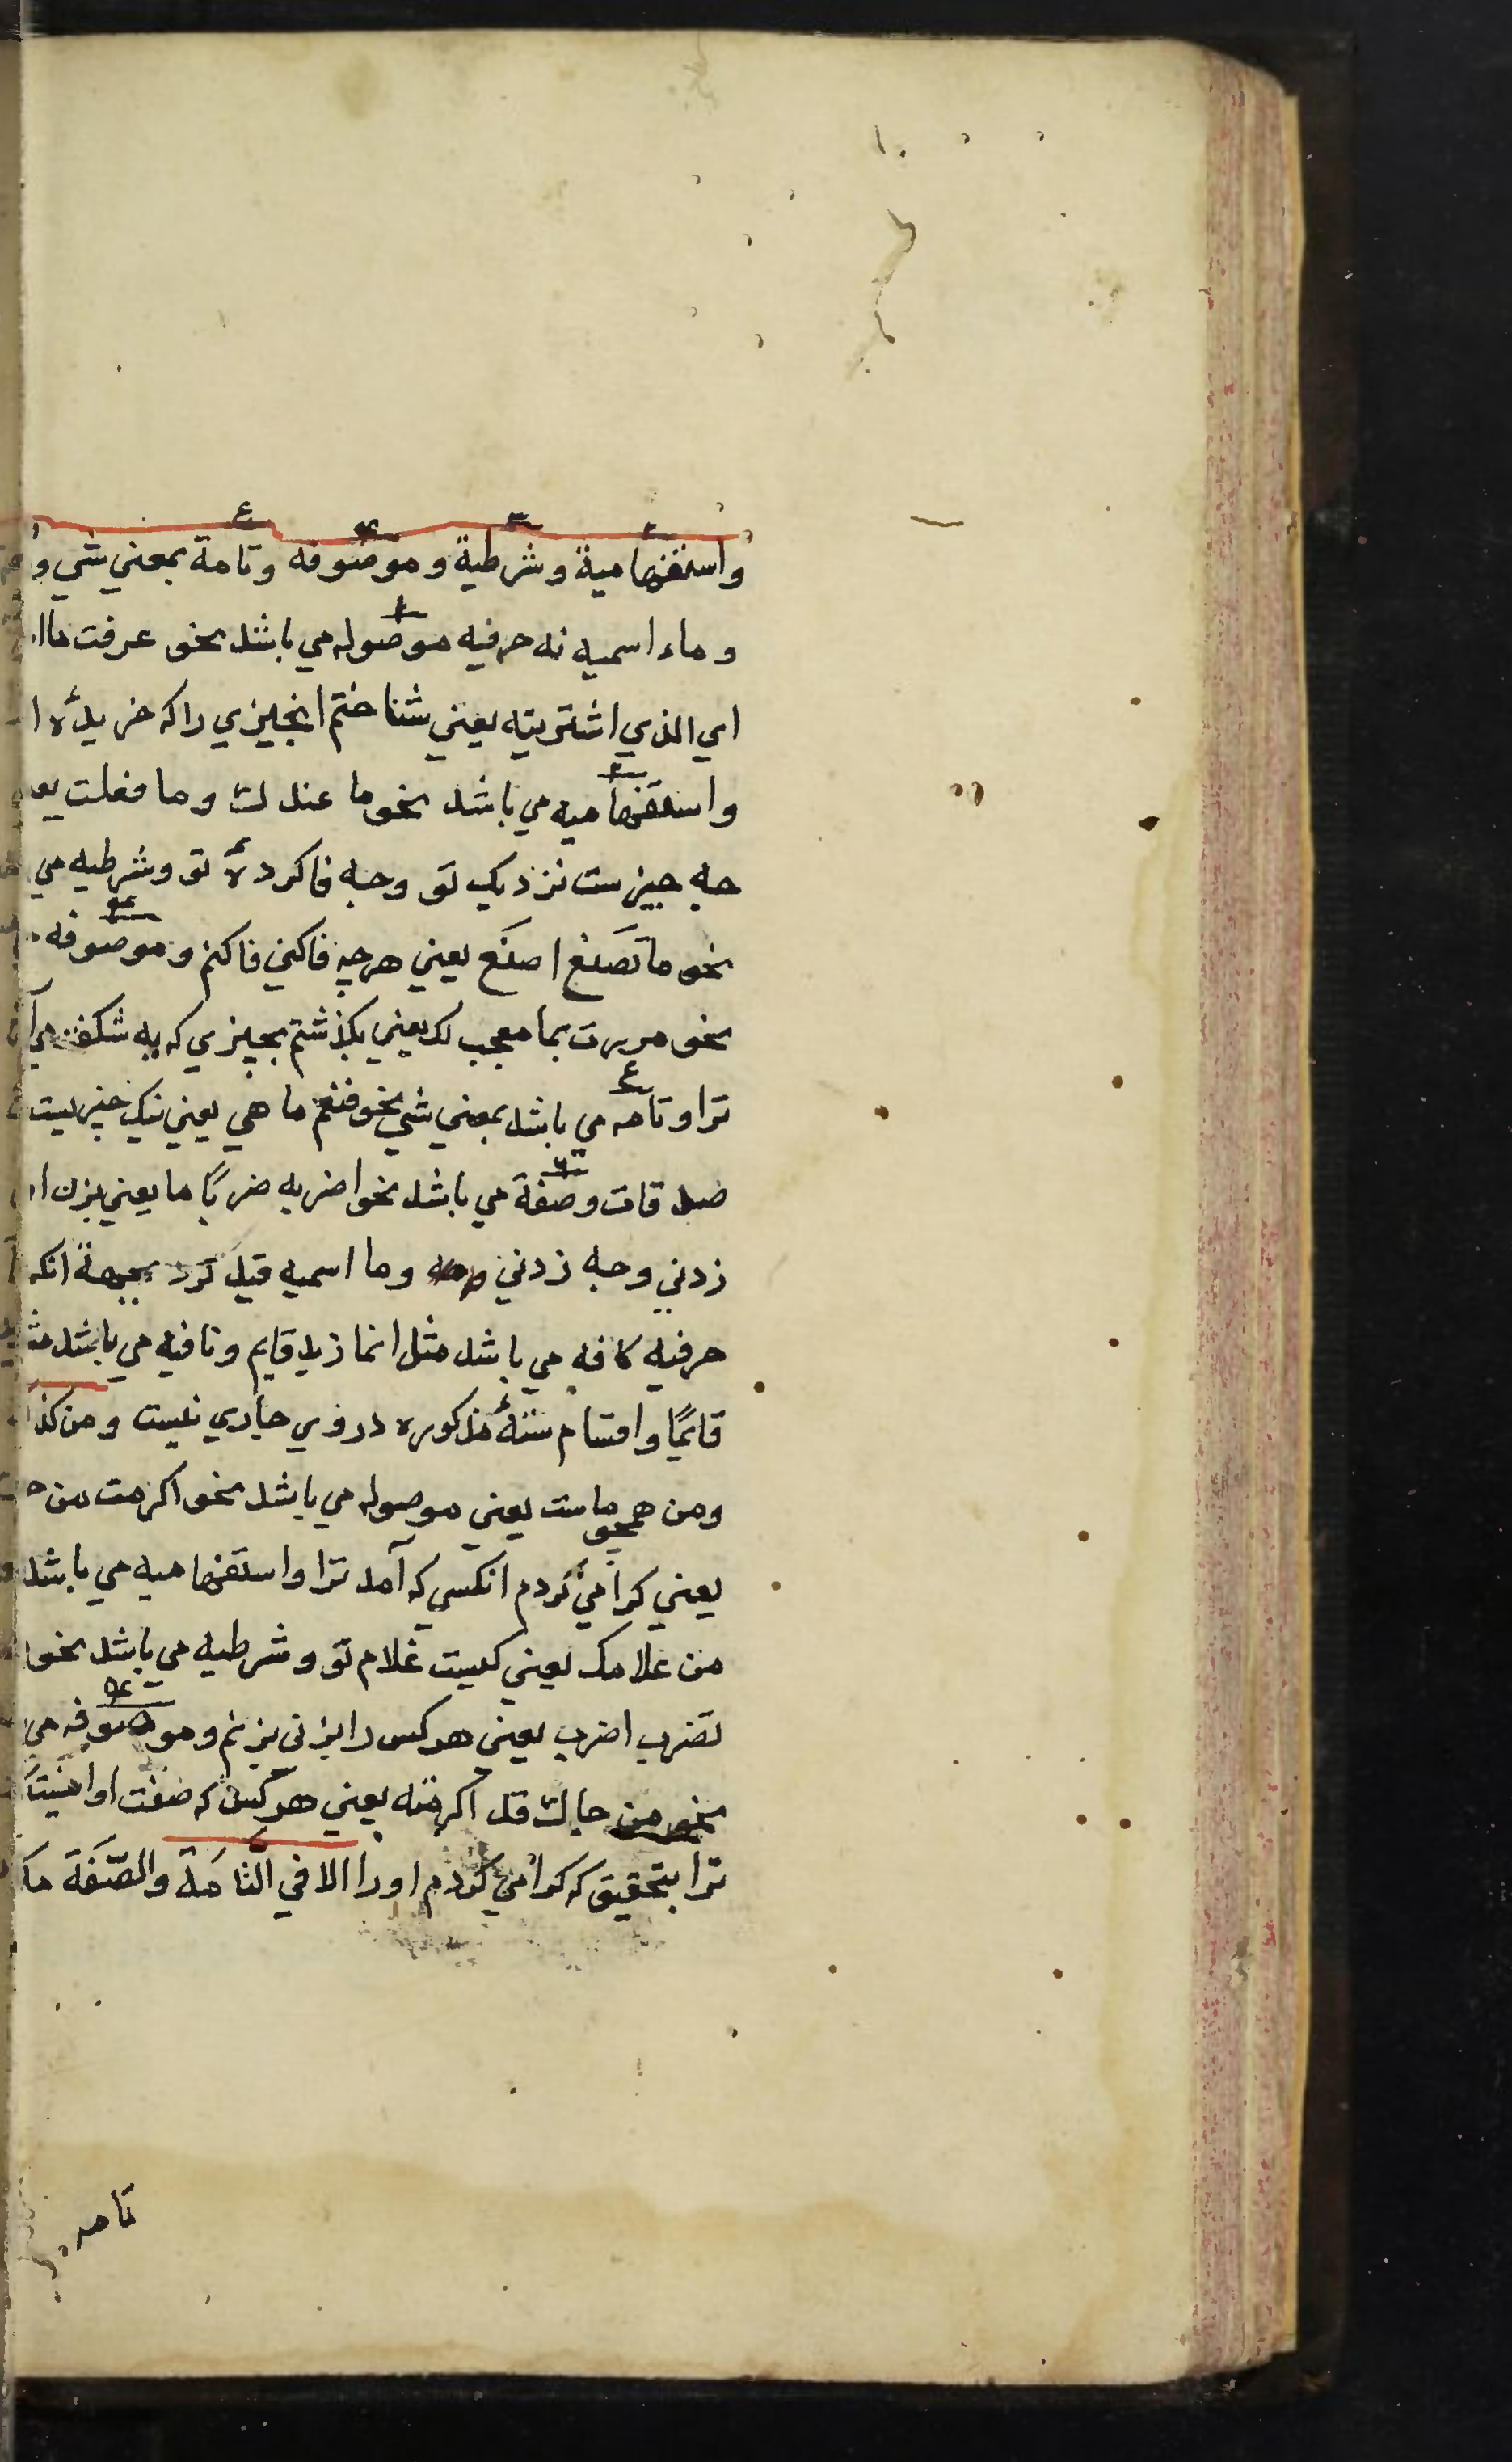 واستفهامية وشرطية وموصوفه وتامة بمعني شي و
وماء اسميه نه حرفيه موصوله مي باشد نحو عرفت ما ا
اي الذي اشتريته يعني شناختم انچيزي را كه خريدۀ
واستفهاميه مي باشد نحو ما عندك وما فعلت يع
چه چيزست نزديك تو وچه فاكردۀ تو وشرطيه مي
نحو ما تصنع اصنع يعني هرچه فاكني فاكنم وموصوفه
نحو مررت بما معجب لك يعني بكذشتم بچيزي كه به شكفت مي آ
ترا وتامه مي باشد بمعني شي نحو فنعم ما هي يعني نيك چيزيست
صدقات وصفة مي باشد نحو اضربه ضربًا ما يعني بزن ا
زدني وچه زدني وما اسميه قيد كرد بجهة انكه
حرفيه كافه مي باشد مثل انما زيد قايم ونافيه مي باشد مث
قائمًا واقسام ستۀ مذكوره در وي جاري نيست ومن كذ
ومن همچو ماست يعني موصوله مي باشد نحو اكرمت من
يعني كرامي كردم انكسي كه آمد ترا واستفهاميه مي باشد
من غلامك يعني كيست غلام تو وشرطيه مي باشد نحو
تضرب اضرب يعني هر كس را بزني بزنم وموصوفه مي
نحو من جاك قد اكرمته يعني هر كس كه صفت او اينست
ترا بتحقيق كه كرامي كردم او را الا في التامة والصفة
تامه